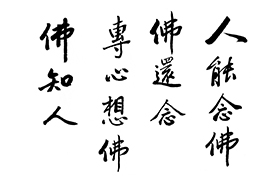 人能念佛
佛還念
專心想佛
佛知人